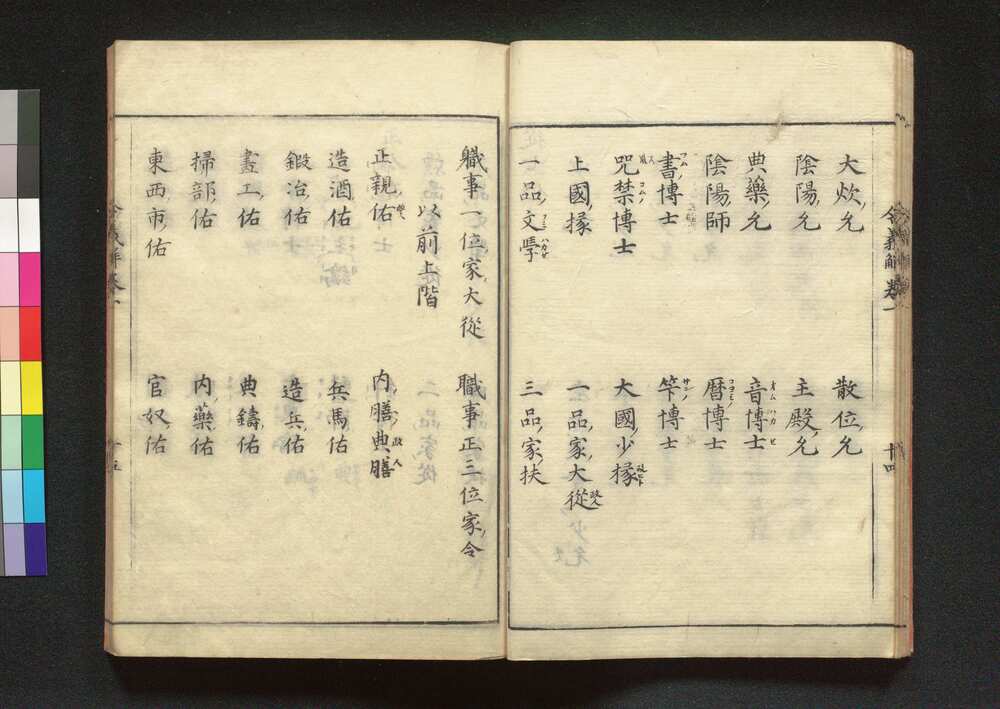 令義解卷一
十四
大炊ノ允
散位ノ允
陰陽ノ允
主殿ノ允
典藥ノ允
音博士
陰陽ノ師
曆博士
書博士
竿博士
咒禁博士
大國ノ少掾
上國ノ掾
一品ノ家ノ大從
一品ノ文學
三品ノ家ノ扶
職事一位家大從
職事正三位家ノ令
以前上階
二品家從
正親ノ佑
內膳ノ典膳
造酒佑
兵馬佑
鍛冶佑
造兵ノ佑
畫工ノ佑
典鑄佑
掃部ノ佑
內藥佑
東西市ノ佑
官奴ノ佑
令義解卷一
十五